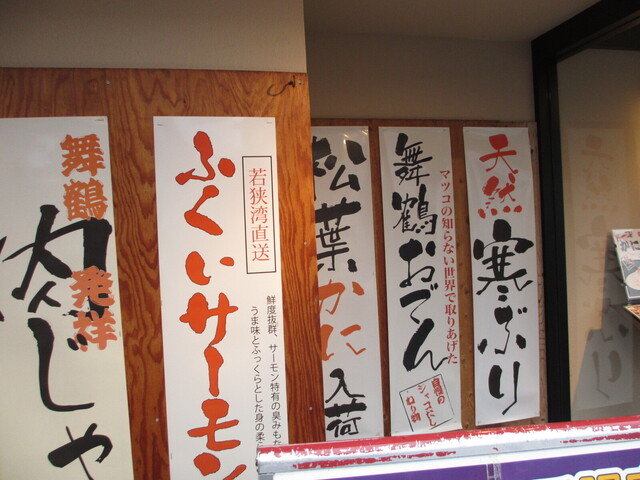 天然
寒ぶり
マツコの知らない世界で取りあげた
舞鶴おでん
自慢の
シャコだし
ねり物
松葉かに入荷
若狭湾直送
ふくいサーモン
鮮度抜群、サーモン特有の臭みも
うま味とふっくらとした身の柔ら
舞鶴 発祥
肉じゃ